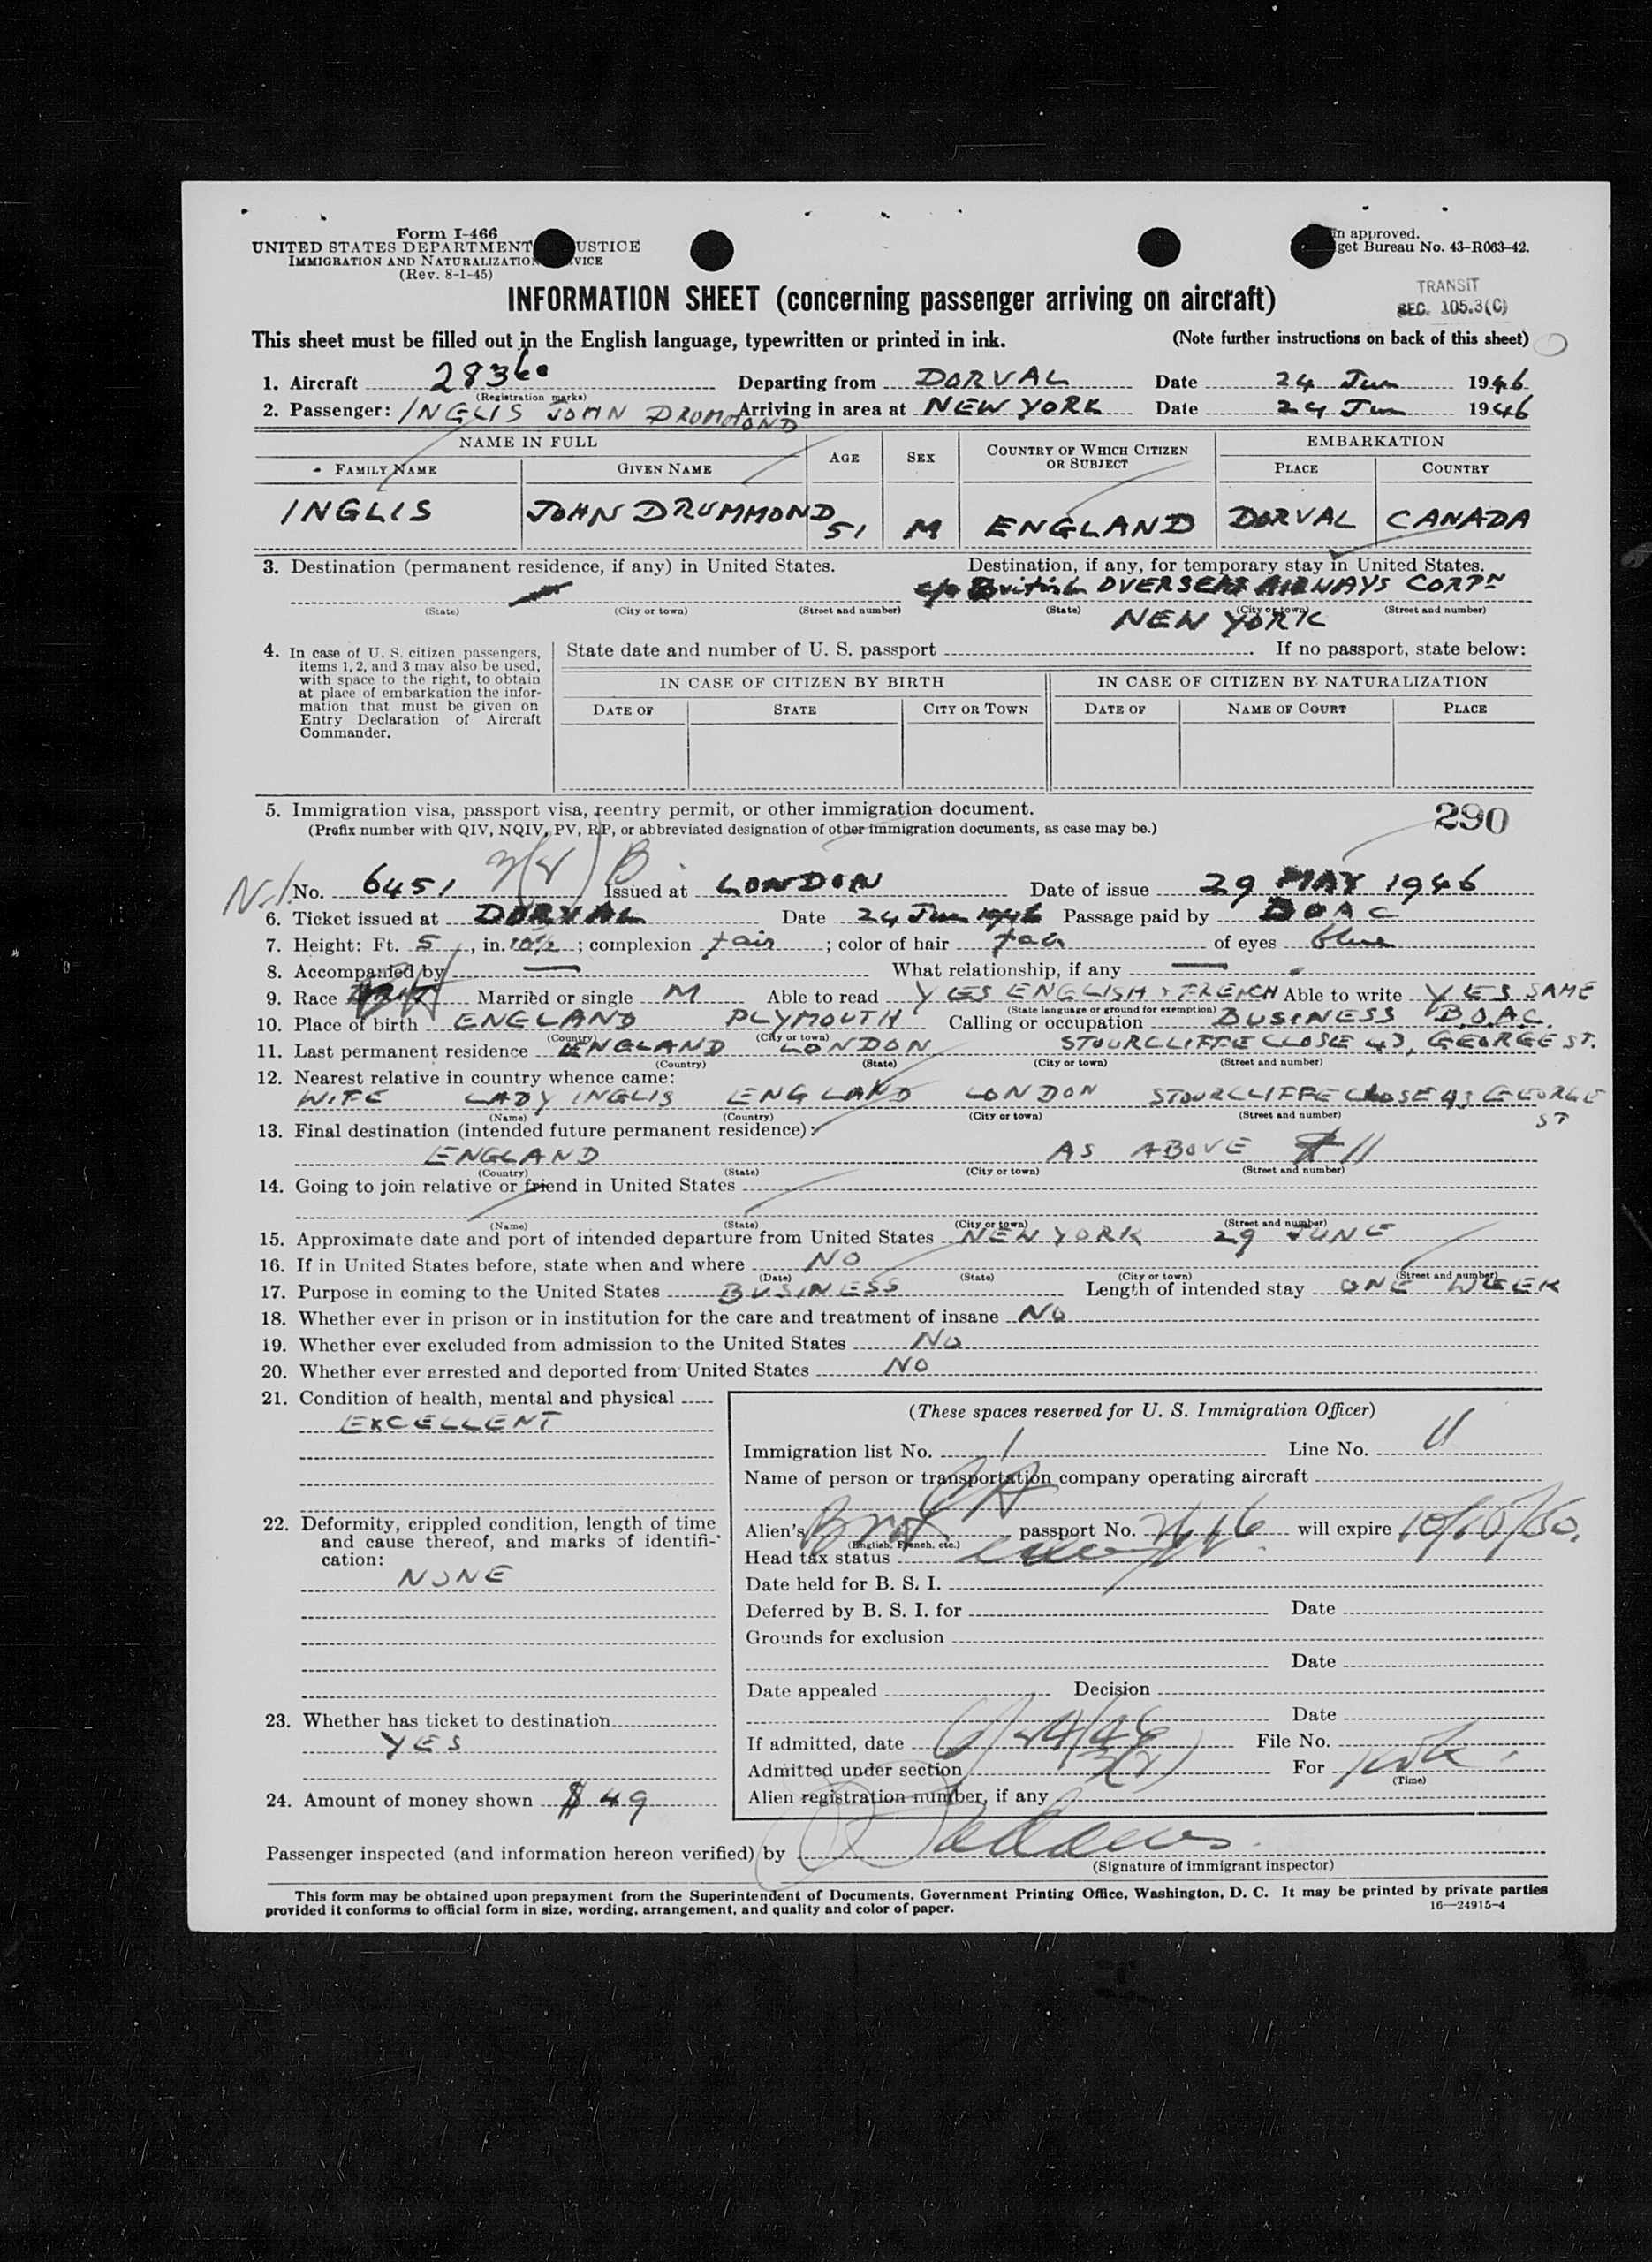 Form I-466
UNITED STATES DEPARTMENT USTICE
IMMIGRATION AND NATURALIZATION VICE
(Rev. 8-1-45)
n approved.
get Bureau No. 43-R063-42.
TRANSIT
SEC. 105.3(C)
INFORMATION SHEET (concerning passenger arriving on aircraft)
This sheet must be filled out in the English language, typewritten or printed in ink. (Note further instructions on back of this sheet)
1. Aircraft Departing from DORVAL Date 24 Jun 1946
(Registration marks)
2. Passenger: INGLIS JOHN DRUMMOND Arriving in area at NEW YORK Date 24 Jun 1946
NAME IN FULL AGE SEX COUNTRY OF WHICH CITIZEN OR SUBJECT EMBARKATION
FAMILY NAME GIVEN NAME PLACE COUNTRY
INGLIS JOHN DRUMMOND 51 M ENGLAND DORVAL CANADA
3. Destination (permanent residence, if any) in United States. Destination, if any, for temporary stay in United States.
c/o British OVERSEAS AIRWAYS CORPN
(State) (City or town) (Street and number) (State) (City or town) (Street and number)
NEW YORK
4. In case of U. S. citizen passengers, items 1, 2, and 3 may also be used, with space to the right, to obtain at place of embarkation the information that must be given on Entry Declaration of Aircraft Commander.
State date and number of U. S. passport If no passport, state below:
IN CASE OF CITIZEN BY BIRTH IN CASE OF CITIZEN BY NATURALIZATION
DATE OF STATE CITY OR TOWN DATE OF NAME OF COURT PLACE
5. Immigration visa, passport visa, reentry permit, or other immigration document. 290
(Prefix number with QIV, NQIV, PV, RP, or abbreviated designation of other immigration documents, as case may be.)
No. 6451 Issued at LONDON Date of issue 29 MAY 1946
6. Ticket issued at DORVAL Date 24 Jun 1946 Passage paid by BOAC
7. Height: Ft. 5, in. 10½; complexion fair; color of hair fair of eyes blue
8. Accompanied by — What relationship, if any —
9. Race Married or single M Able to read YES ENGLISH & FRENCH Able to write YES SAME
(State language or ground for exemption)
10. Place of birth ENGLAND PLYMOUTH Calling or occupation BUSINESS B.O.A.C.
(Country) (City or town)
11. Last permanent residence ENGLAND LONDON STOURCLIFFE CLOSE 43, GEORGE ST.
(Country) (State) (City or town) (Street and number)
12. Nearest relative in country whence came:
WIFE LADY INGLIS ENGLAND LONDON STOURCLIFFE CLOSE 43 GEORGE ST
(Name) (Country) (City or town) (Street and number)
13. Final destination (intended future permanent residence):
ENGLAND AS ABOVE # 11
(Country) (State) (City or town) (Street and number)
14. Going to join relative or friend in United States
(Name) (State) (City or town) (Street and number)
15. Approximate date and port of intended departure from United States NEW YORK 29 JUNE
16. If in United States before, state when and where NO
(Date) (State) (City or town) (Street and number)
17. Purpose in coming to the United States BUSINESS Length of intended stay ONE WEEK
18. Whether ever in prison or in institution for the care and treatment of insane NO
19. Whether ever excluded from admission to the United States NO
20. Whether ever arrested and deported from United States NO
21. Condition of health, mental and physical
EXCELLENT
22. Deformity, crippled condition, length of time and cause thereof, and marks of identification:
NONE
23. Whether has ticket to destination
YES
24. Amount of money shown $ 49
(These spaces reserved for U. S. Immigration Officer)
Immigration list No. 1 Line No. 11
Name of person or transportation company operating aircraft
Alien's Brit passport No. will expire 10/10/50.
(English, French, etc.)
Head tax status
Date held for B. S. I.
Deferred by B. S. I. for Date
Grounds for exclusion
Date
Date appealed Decision
Date
If admitted, date 6/24/46 File No.
Admitted under section 3(2) For 1 wk.
(Time)
Alien registration number, if any
Passenger inspected (and information hereon verified) by
(Signature of immigrant inspector)
This form may be obtained upon prepayment from the Superintendent of Documents, Government Printing Office, Washington, D. C. It may be printed by private parties
provided it conforms to official form in size, wording, arrangement, and quality and color of paper. 16—24915-4